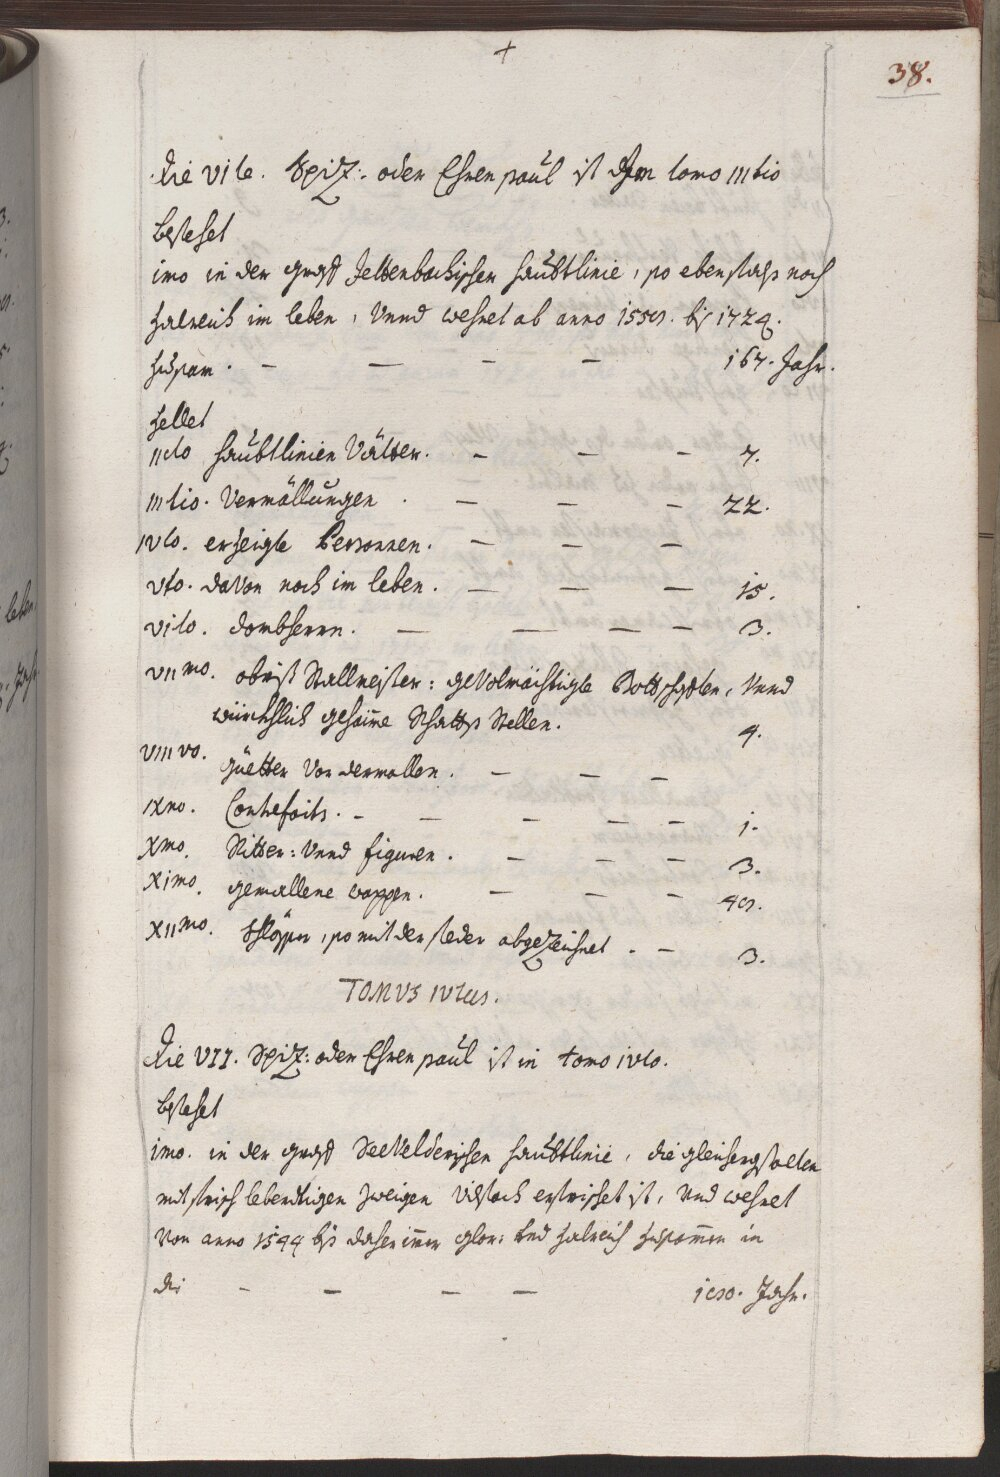 +
38.
Die VIte. Spiz: oder Ehren paul ist dem tomo IIItio
bestehet
imo in der graff Zeltenbachischen haubtlinie, so ebenfahls noch
zalreich im leben, Vnnd wehret ab anno 1557. bis 1724.
zusam. — — — — 167. Jahr.
zellet
IIdo haubtlinien Vätter. — — — 7.
IIItio. Vermällungen. — — — 22.
IVto. erzeigte Persohnen. — — —
Vto. daVon noch im leben. — — — 15.
VIto. dombherrn. — — — — 3.
VIImo. obrist Stallmeister: geVolmächtigte Bottschafften, Vnnd
würckhlich gehaime Rhatts Stellen. 4.
VIIIvo. Güetter Von dermallen. — — —
IXno. Contrefaits. — — — — — 1.
Xmo. Ritter: Vnnd figuren. — — — 3.
XImo. gemallene wappen. — — — 47.
XIImo. Schlösser, so mit der feder abgezeichnet. — 3.
TOMVS IVtus.
Die VII. Spiz: oder Ehren paul ist in tomo IVto.
bestehet
imo. in der graff SeeVelderischen haubtlinie, die gleichergstalten
mit frisch lebendtigen zweigen erfrischet ist, Vnd wehret
Von anno 1544 bis daher imer glor: Vnd zalreich zusamen in
die — — — — 180. Jahr.